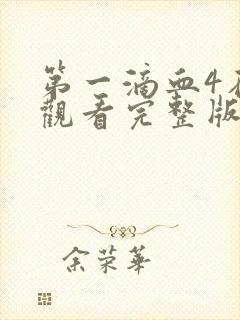 第一滴血4在
觀看完整版
余荣華